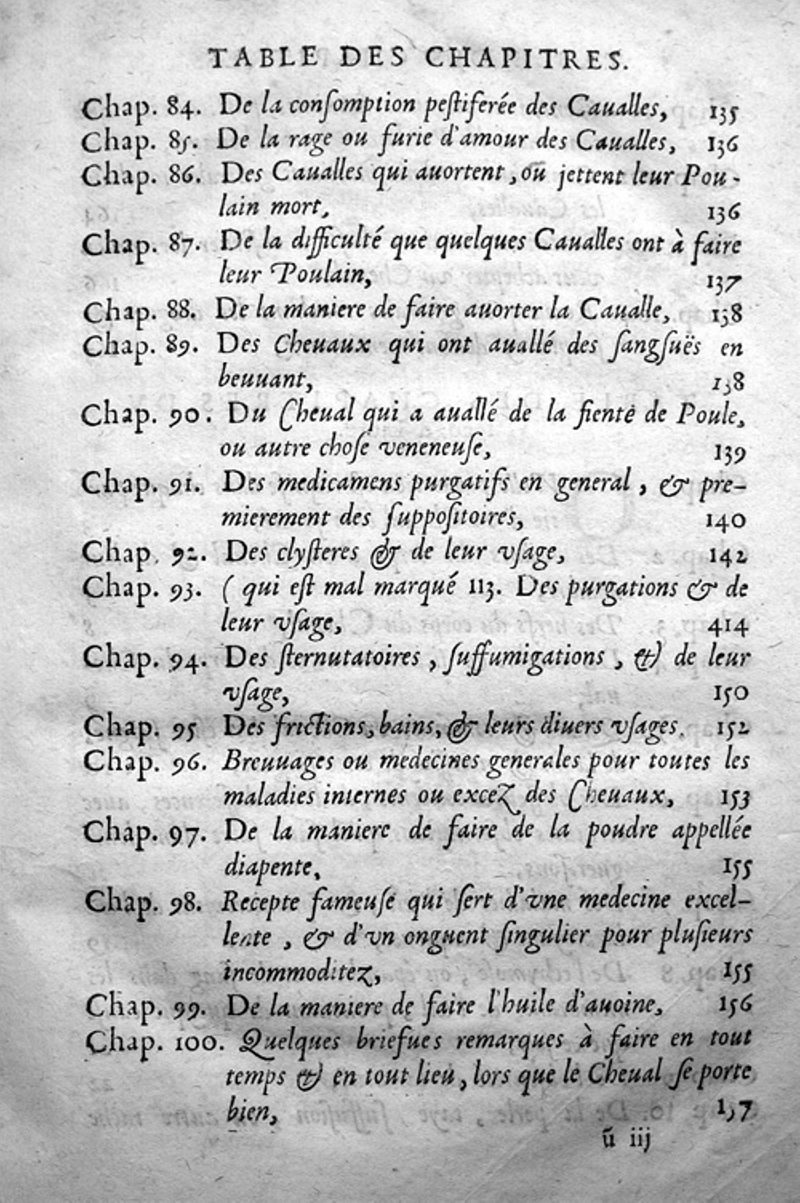 TABLE DES CHAPITRES.
Chap. 84. De la conſomption peſtiferée des Caualles, 135
Chap. 85. De la rage ou furie d'amour des Caualles, 136
Chap. 86. Des Caualles qui auortent, ou jettent leur Pou-
lain mort, 136
Chap. 87. De la difficulté que quelques Caualles ont à faire
leur Poulain, 137
Chap. 88. De la maniere de faire auorter la Caualle, 138
Chap. 89. Des Cheuaux qui ont auallé des ſangſuës en
beuuant, 138
Chap. 90. Du Cheual qui a auallé de la fiente de Poule,
ou autre choſe veneneuſe, 139
Chap. 91. Des medicamens purgatifs en general, & pre-
mierement des ſuppoſitoires, 140
Chap. 92. Des clyſteres & de leur vſage, 142
Chap. 93. ( qui eſt mal marqué 113. Des purgations & de
leur vſage, 414
Chap. 94. Des ſternutatoires, ſuffumigations, & de leur
vſage, 150
Chap. 95 Des frictions, bains, & leurs diuers vſages. 152
Chap. 96. Breuuages ou medecines generales pour toutes les
maladies internes ou excez des Cheuaux, 153
Chap. 97. De la maniere de faire de la poudre appellée
diapente, 155
Chap. 98. Recepte fameuſe qui ſert d'vne medecine excel-
lente, & d'vn onguent ſingulier pour pluſieurs
incommoditez, 155
Chap. 99. De la maniere de faire l'huile d'auoine, 156
Chap. 100. Quelques briefues remarques à faire en tout
temps & en tout lieu, lors que le Cheual ſe porte
bien, 157
ũ iij